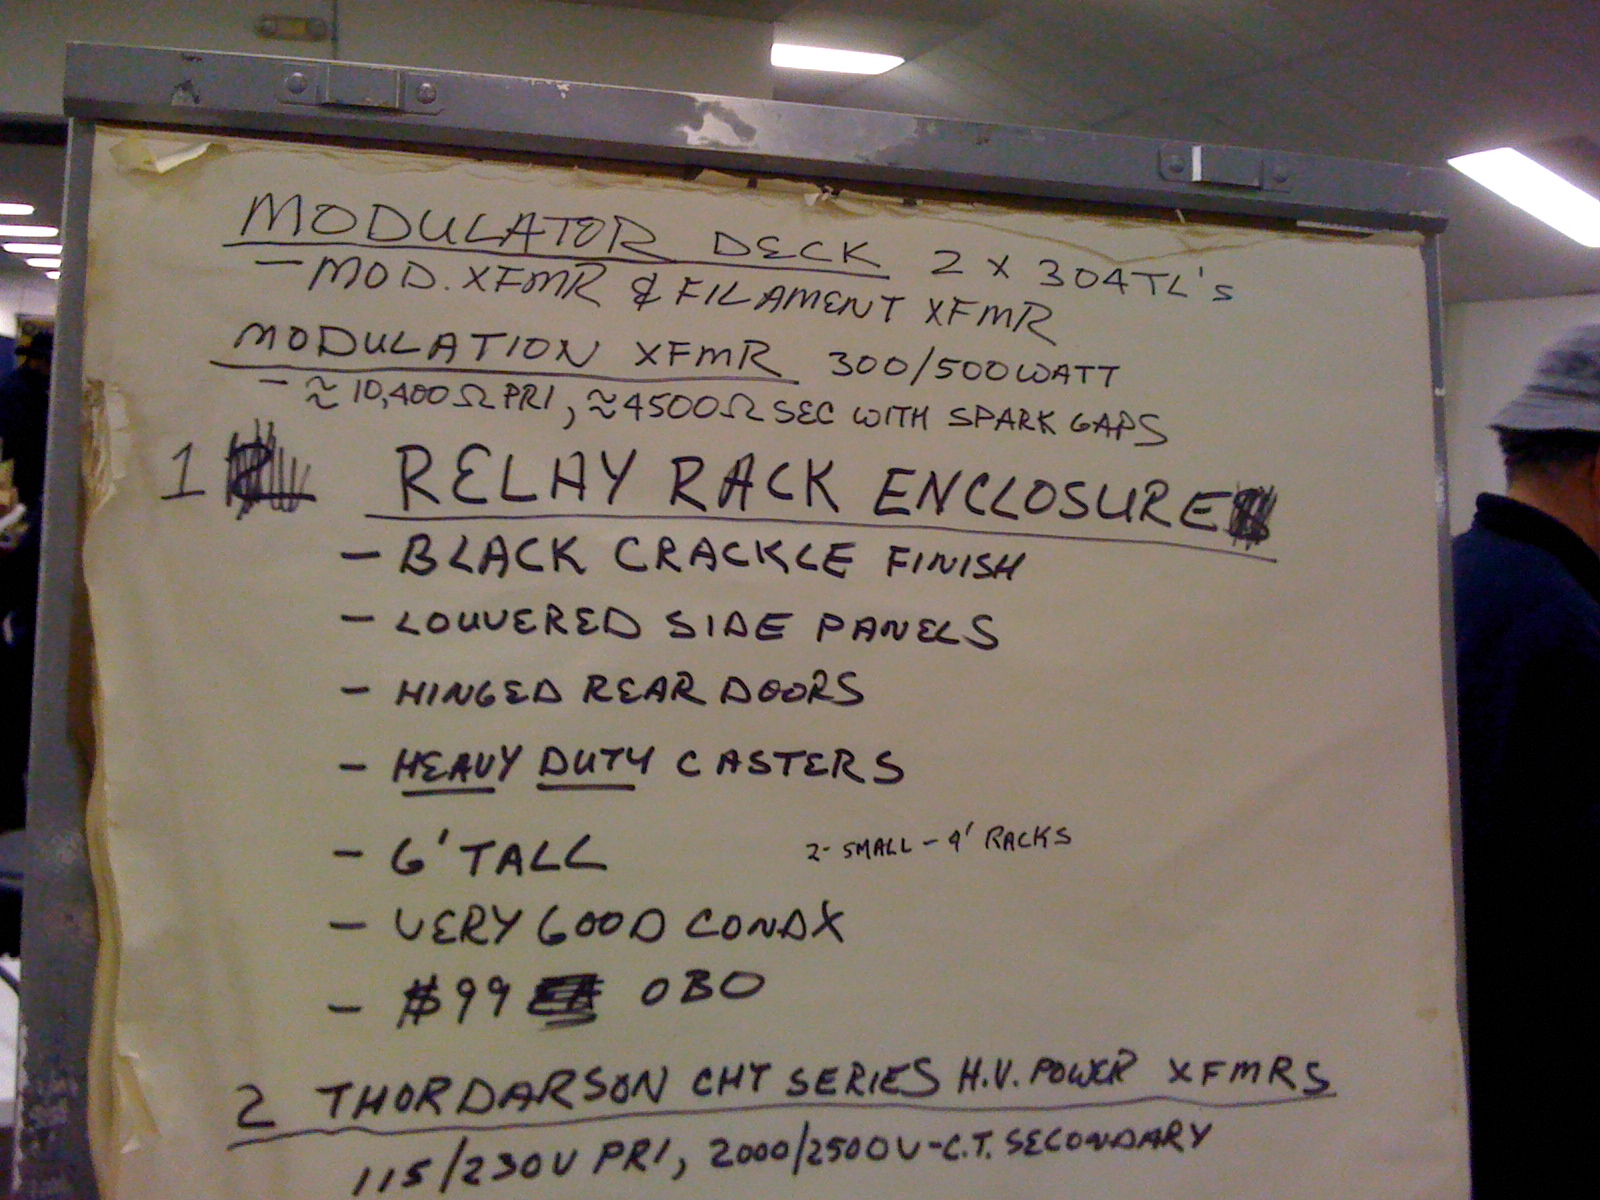 MODULATOR DECK 2 X 304TL's
- MOD. XFMR & FILAMENT XFMR
MODULATION XFMR 300/500WATT
- ≈ 10,400Ω PRI, ≈4500Ω SEC WITH SPARK GAPS
1 RELAY RACK ENCLOSURE
- BLACK CRACKLE FINISH
- LOUVERED SIDE PANELS
- HINGED REAR DOORS
- HEAVY DUTY CASTERS
- 6' TALL
2- SMALL - 4' RACKS
- VERY GOOD CONDX
- $99 OBO
2 THORDARSON CHT SERIES H.V. POWER XFMRS
115/230V PRI, 2000/2500V-C.T. SECONDARY